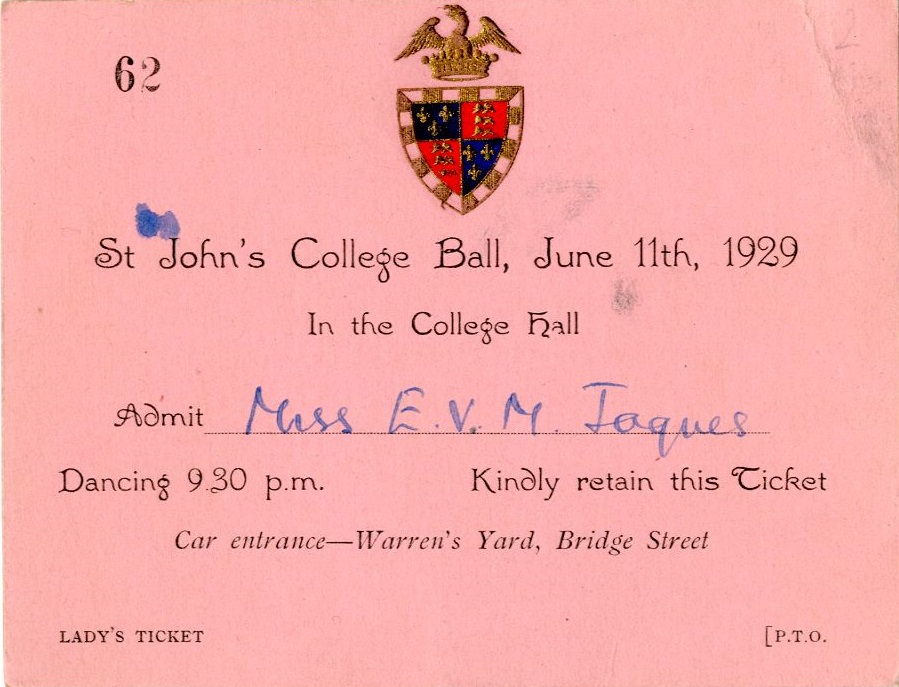 62
St John's College Ball, June 11th, 1929
In the College Hall
Admit Miss E. V. M. Jaques
Dancing 9.30 p.m. Kindly retain this Ticket
Car entrance—Warren's Yard, Bridge Street
LADY'S TICKET [P.T.O.